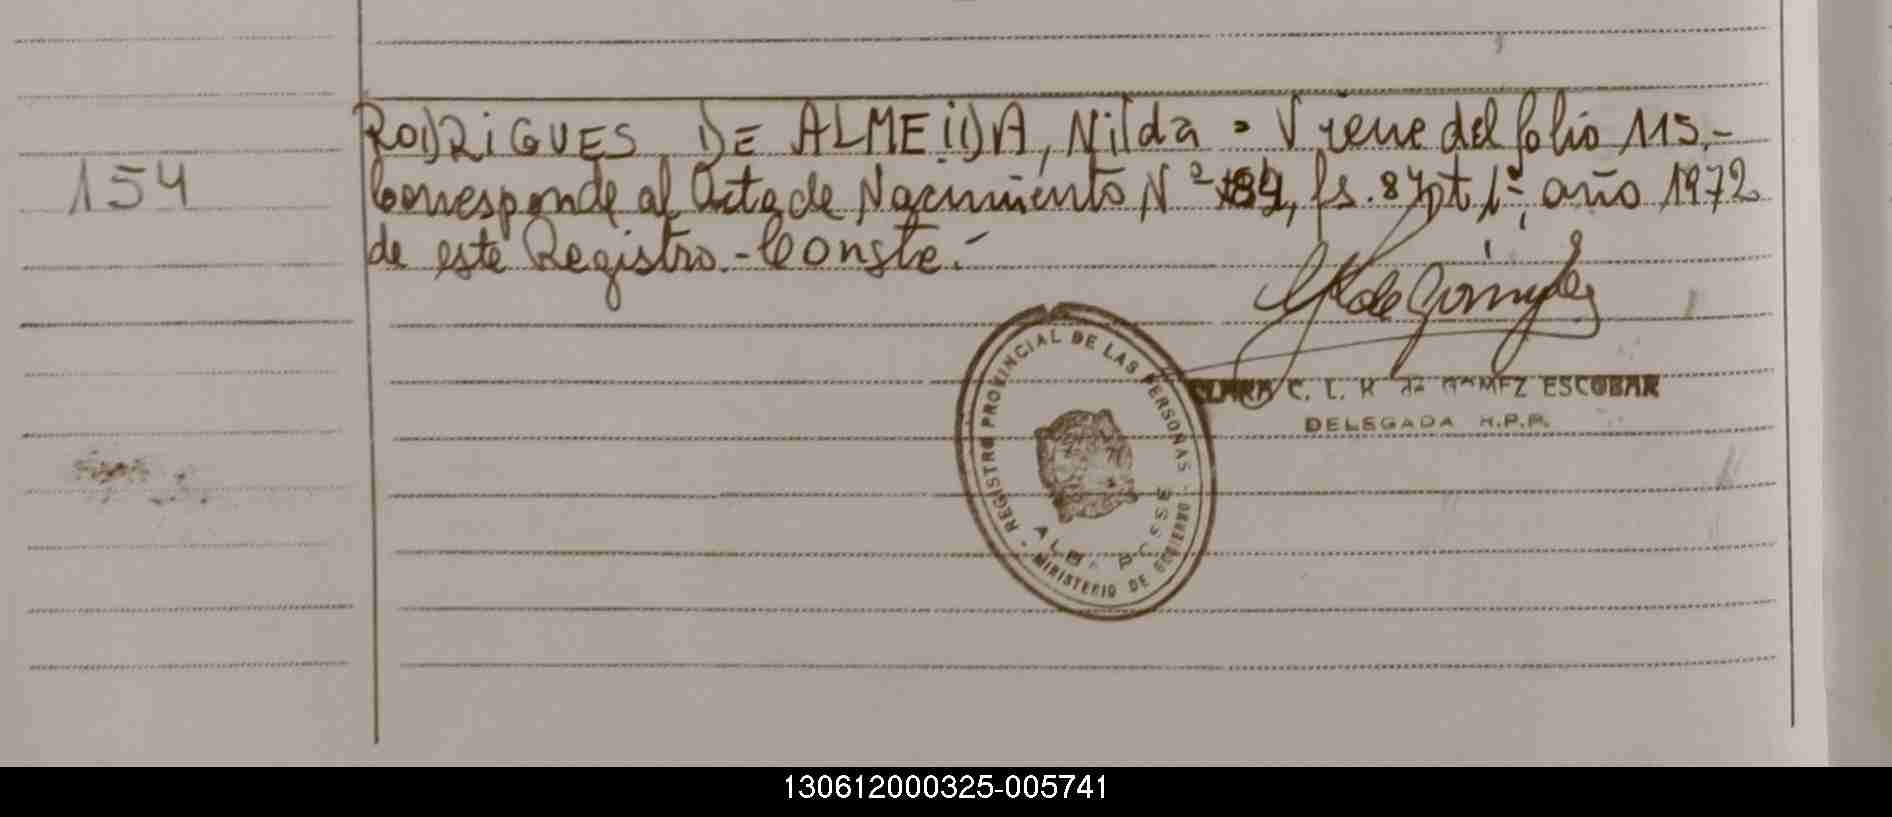 154
RODRIGUES DE ALMEIDA, Nilda - Viene del folio 115.-
Corresponde al Acta de Nacimiento Nº 84, fs. 84, tº 1º, año 1972
de este Registro.- Conste.-
REGISTRO PROVINCIAL DE LAS PERSONAS
MINISTERIO DE GOBIERNO
ALBA POSSE
CLARA C. L. K. de GOMEZ ESCOBAR
DELEGADA R.P.P.
130612000325-005741